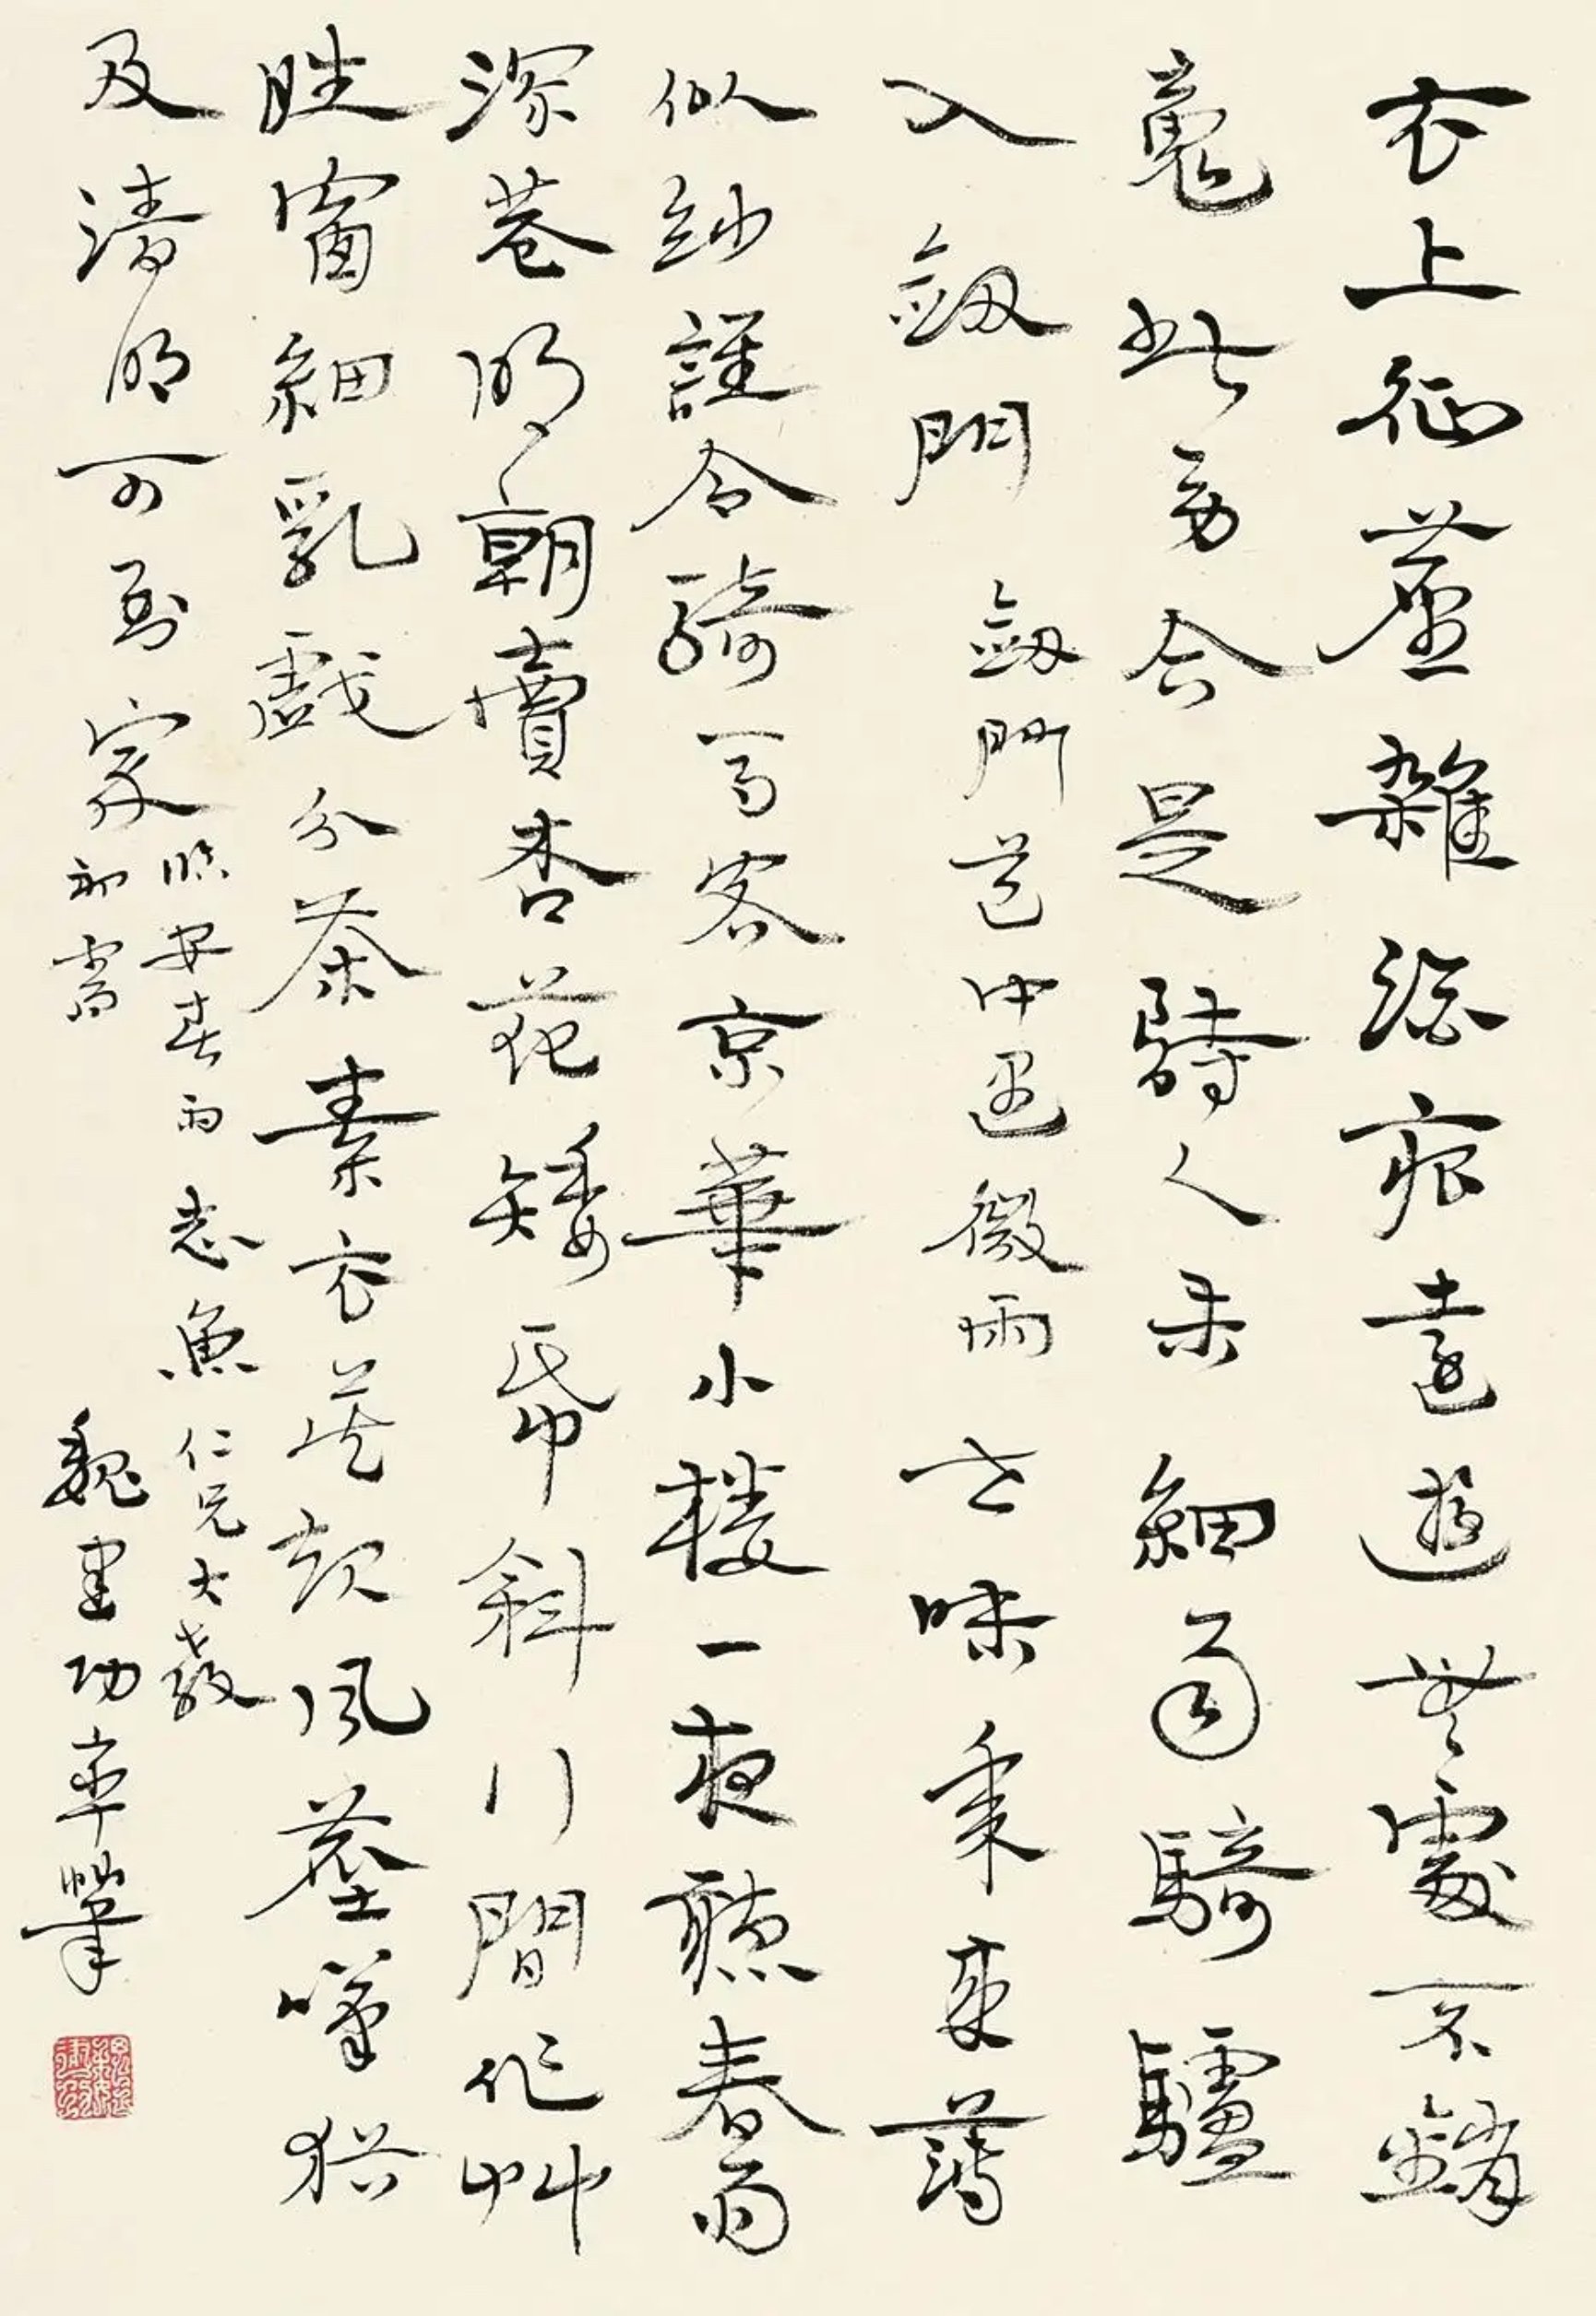 衣上征塵雜酒痕遠遊無處不銷
魂此身合是詩人未細雨騎驢
入劍門 劍門道中遇微雨 世味年來薄
似紗誰令騎馬客京華小樓一夜聽春雨
深巷明朝賣杏花矮紙斜行閒作艸
晴窗細乳戲分茶素衣莫起風塵嘆猶
及清明可到家
臨安春雨
初霽
魚仁兄大教
魏建功率筆